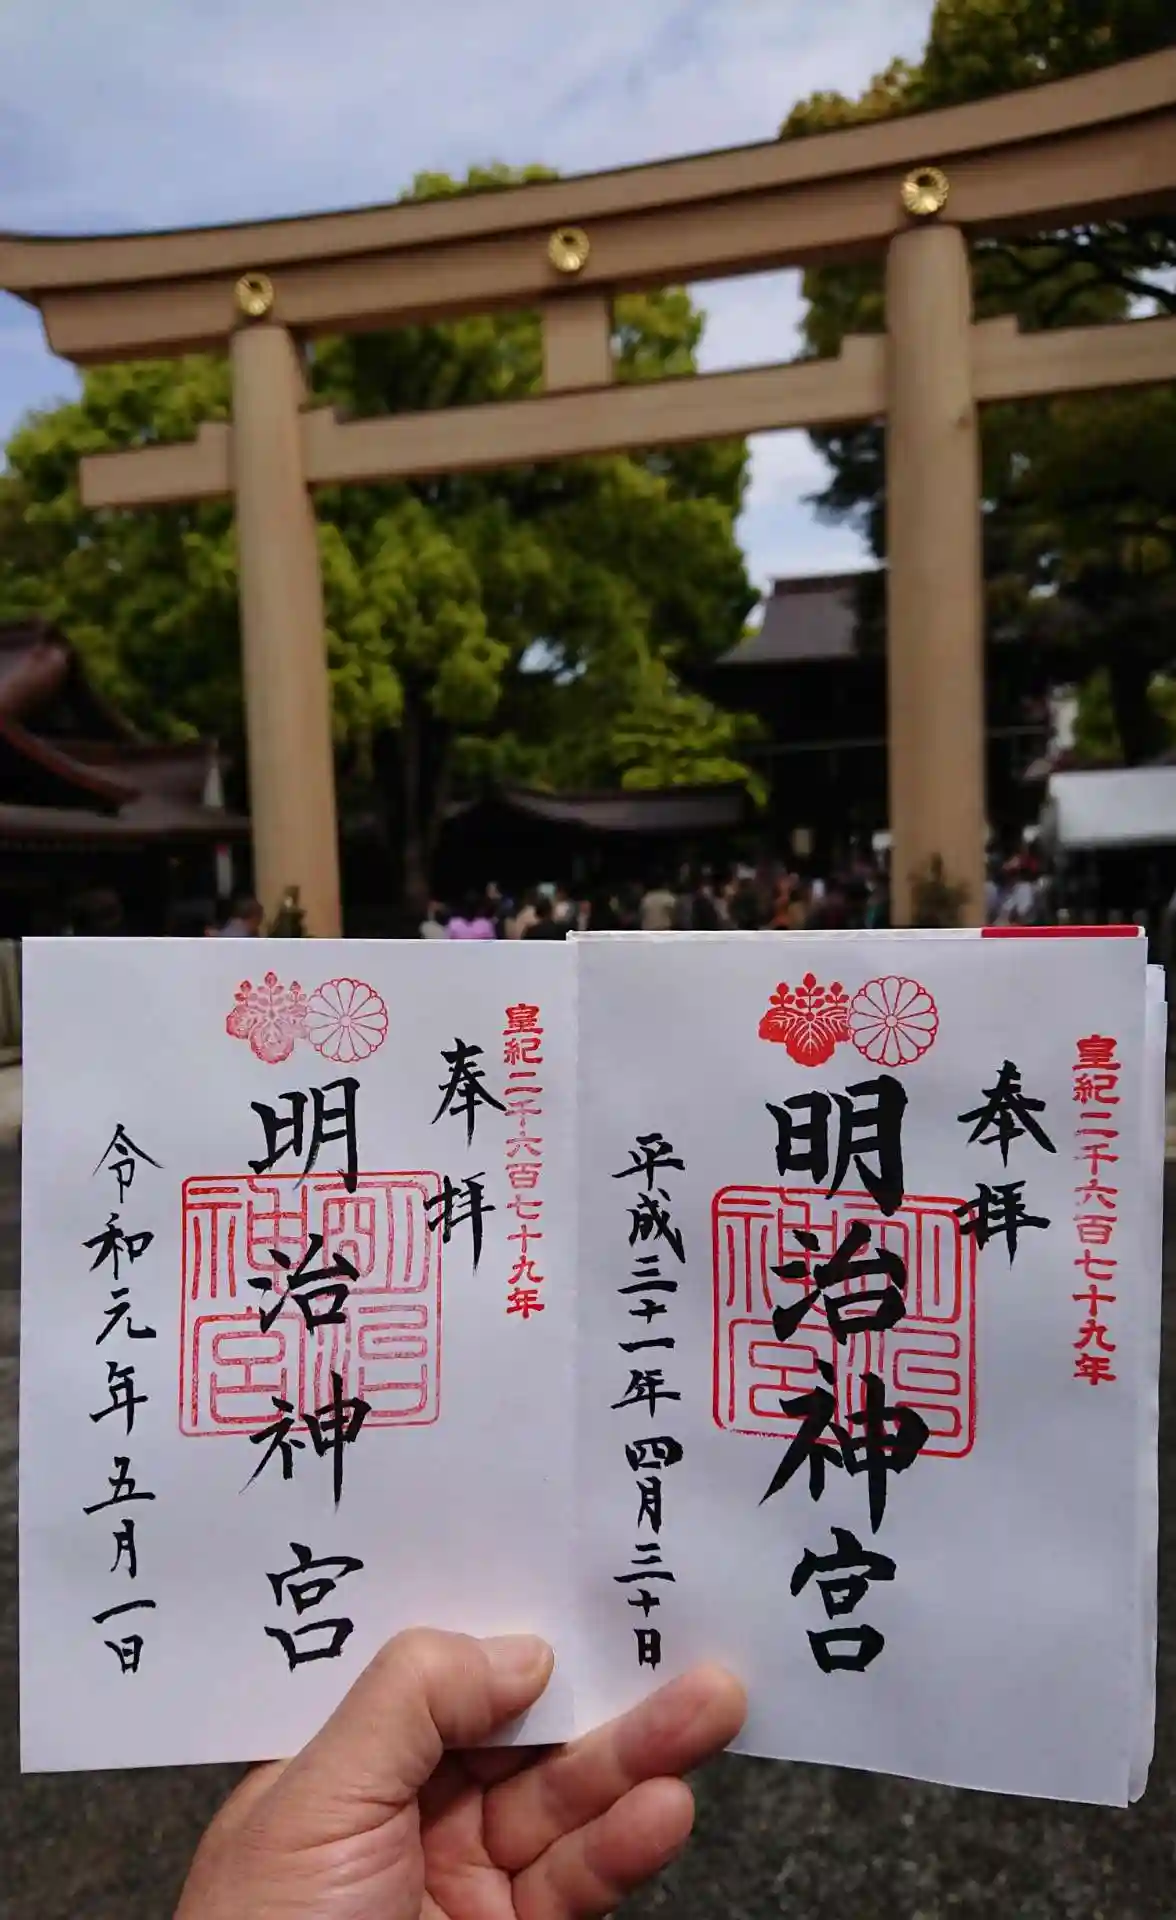 皇紀二千六百七十九年
奉拝
明治神宮
平成三十一年四月三十日
皇紀二千六百七十九年
奉拝
明治神宮
令和元年五月一日
明治神宮
明治神宮